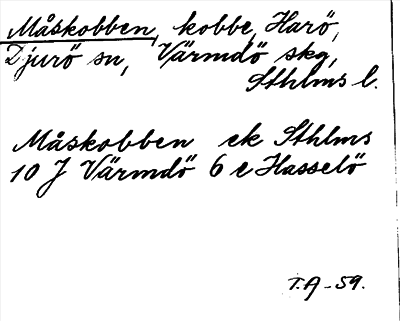 Måskobben, kobbe, Harö,
Djurö sn, Värmdö skg,
Sthlms l.
Måskobben ek Sthlms
10 J Värmdö 6 e Hasselö
T.A-59.